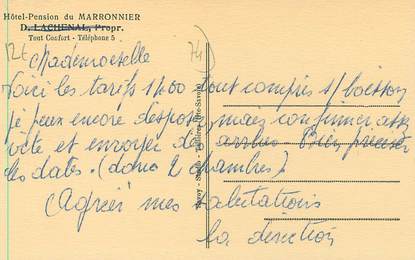 Hôtel-Pension du MARRONNIER
D. LACHENAL, Propr.
Tout Confort - Téléphone 5
12t
74
Mademoiselle
Voici les tarifs 1200 tout compris s/ boisson
je peux encore disposer, mais confirmer assez
vite et envoyer des arrhes Bien préciser
les dates. (donc 2 chambres)
Agréer mes salutations
la direction